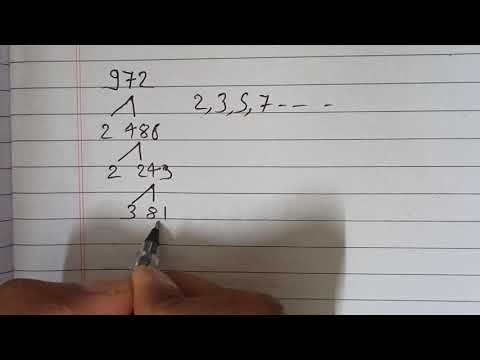 972
2,3,5,7-- -
2 486
2 243
3 81